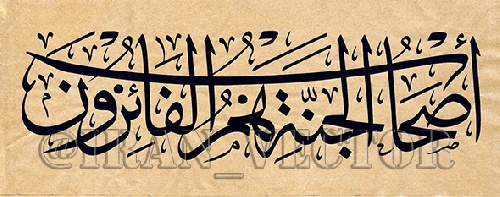 أصحاب الجنة هم الفائزون
@IRAN_VECTOR